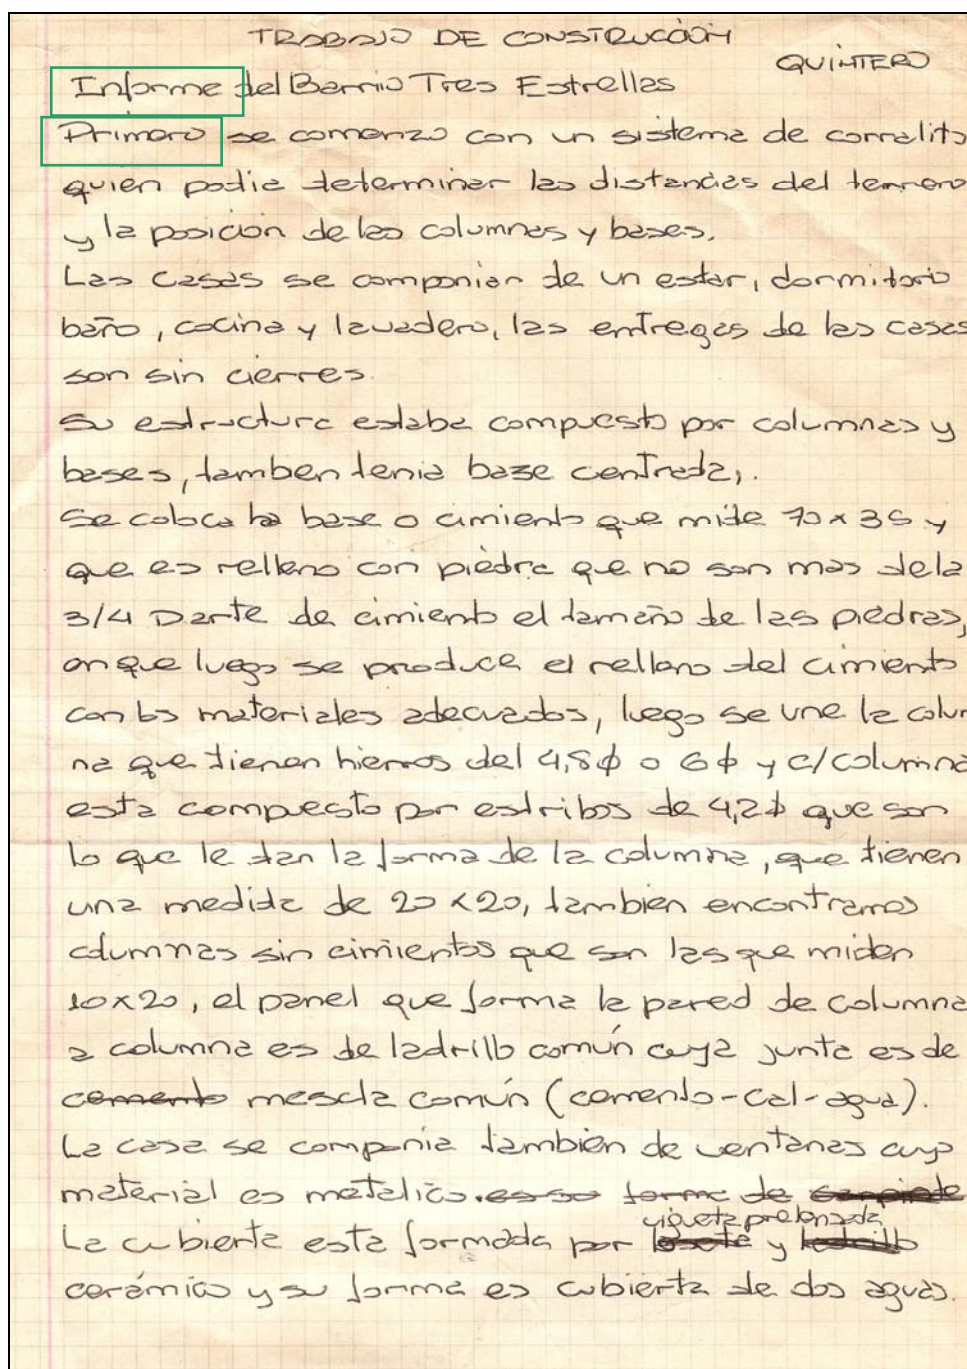 TRABAJO DE CONSTRUCCIÓN
QUINTERO
Informe del Barrio Tres Estrellas
Primero se comenzo con un sistema de corralito
quien podia determinar las distancias del terreno
y la posicion de las columnas y bases.
Las casas se componian de un estar, dormitorio
baño, cocina y lavadero, las entregas de las casas
son sin cierres.
Su estructura estaba compuesto por columnas y
bases, tambien tenia base centrada,.
Se coloca la base o cimiento que mide 70x35 y
que es relleno con piedra que no son mas de la
3/4 Parte de cimiento el tamaño de las piedras,
en que luego se produce el relleno del cimiento
con los materiales adecuados, luego se une la colum
na que tienen hierros del 4,8ϕ o 6ϕ y c/columna
esta compuesto por estribos de 4,2ϕ que son
lo que le dan la forma de la columna, que tienen
una medida de 20x20, tambien encontramos
columnas sin cimientos que son las que miden
10x20, el panel que forma la pared de columna
a columna es de ladrillo común cuya junta es de
cemento mescla común (cemento-cal-agua).
La casa se componia tambien de ventanas cuyo
material es metalico. forma de
vigueta pretensada
La cubierta esta formada por loseta y ladrillo
cerámico y su forma es cubierta de dos aguas.